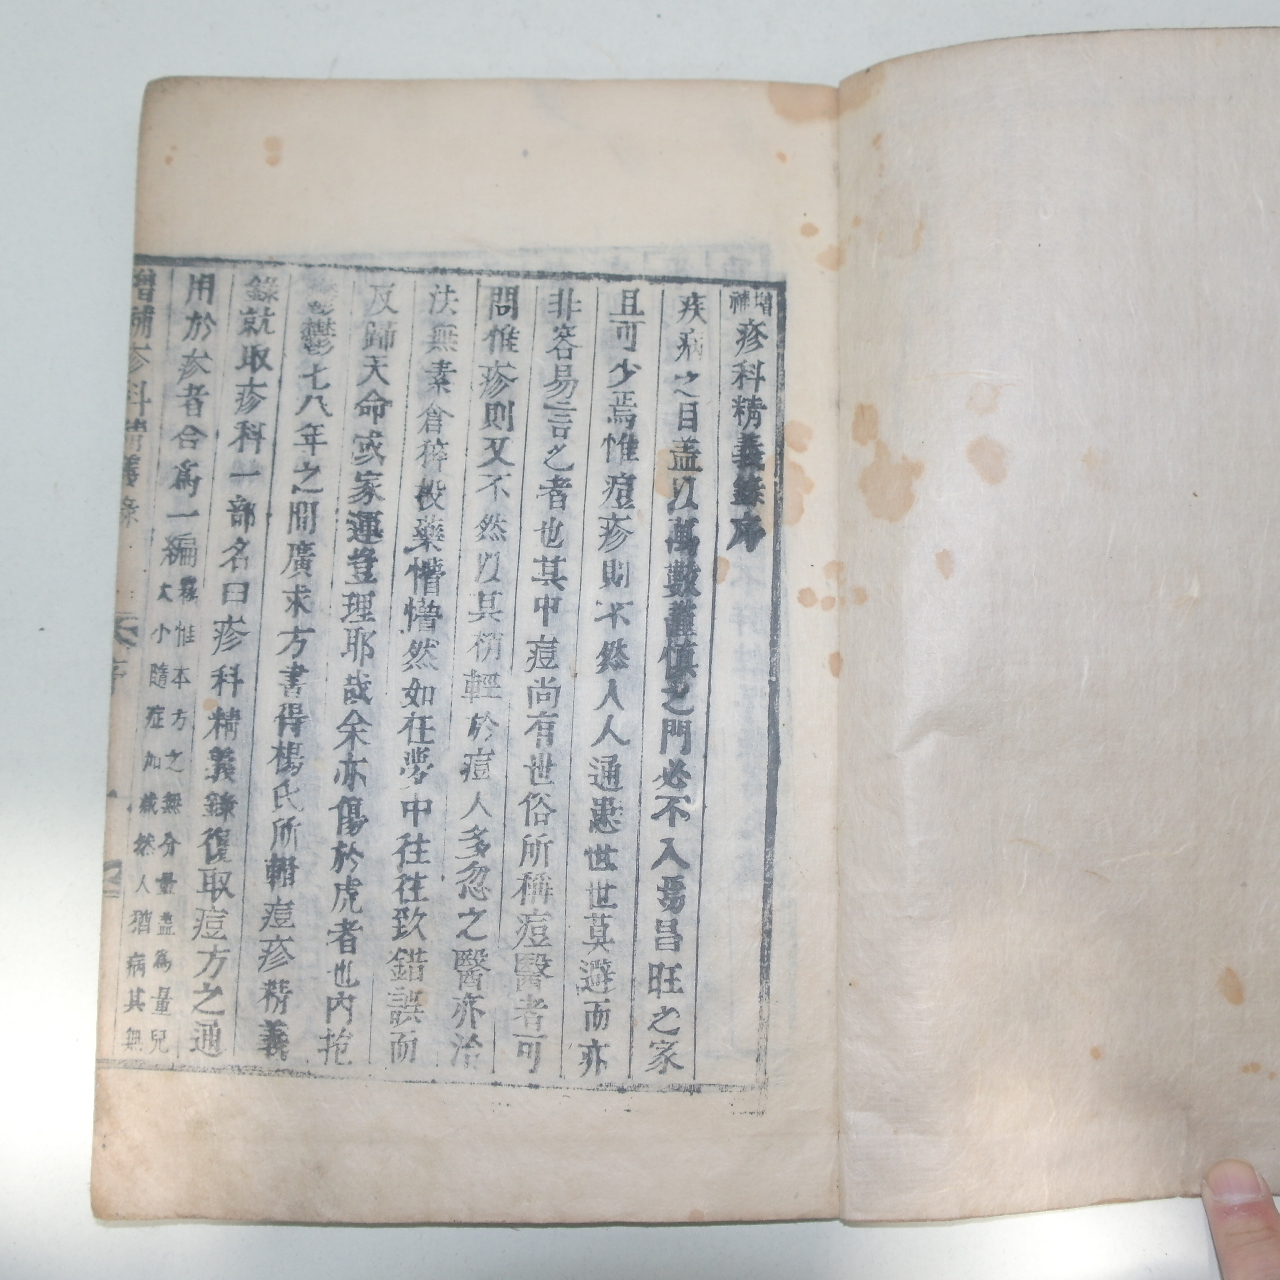 增補疹科精義錄序
疾病之目盖以萬數謹慎之門必不入焉昌旺之家
且可少焉惟痘疹則不然人人通患世世莫避而亦
非容易言之者也其中痘尚有世俗所稱痘醫者可
問惟疹則又不然以其稍輕於痘人多忽之醫亦治
法無素倉猝投藥懵懵然如在夢中往往致錯誤而
反歸天命或家運豈理耶哉余亦傷於虎者也內抱
鬱七八年之間廣求方書得楊氏所輯痘疹精義
錄就取疹科一部名曰疹科精義錄復取痘方之通
用於疹者合爲一編雖惟本方之無分量盖爲量兒
大小隨症加减然人猶病其無
增補疹科精義錄
序